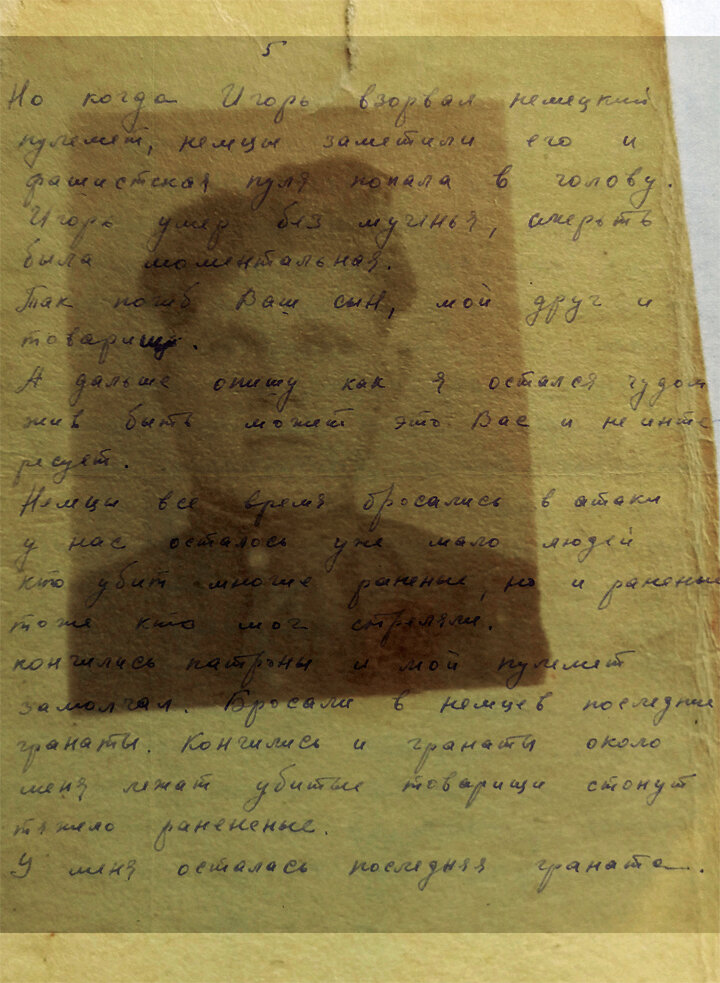 5
Но когда Игорь взорвал немецкий
пулемет, немцы заметили его и
фашистская пуля попала в голову.
Игорь умер без мученья, смерть
была моментальная.
Так погиб Ваш сын, мой друг и
товарищ.
А дальше опишу как я остался чудом
жив быть может это Вас и не инте
ресует.
Немцы все время бросались в атаки
у нас осталось уже мало людей
кто убит многие раненые, но и раненые
тоже кто мог стреляли.
кончились патроны и мой пулемет
замолчал. Бросали в немцев последние
гранаты. Кончились и гранаты около
меня лежат убитые товарищи стонут
тяжело ранененые.
У меня осталась последняя граната.